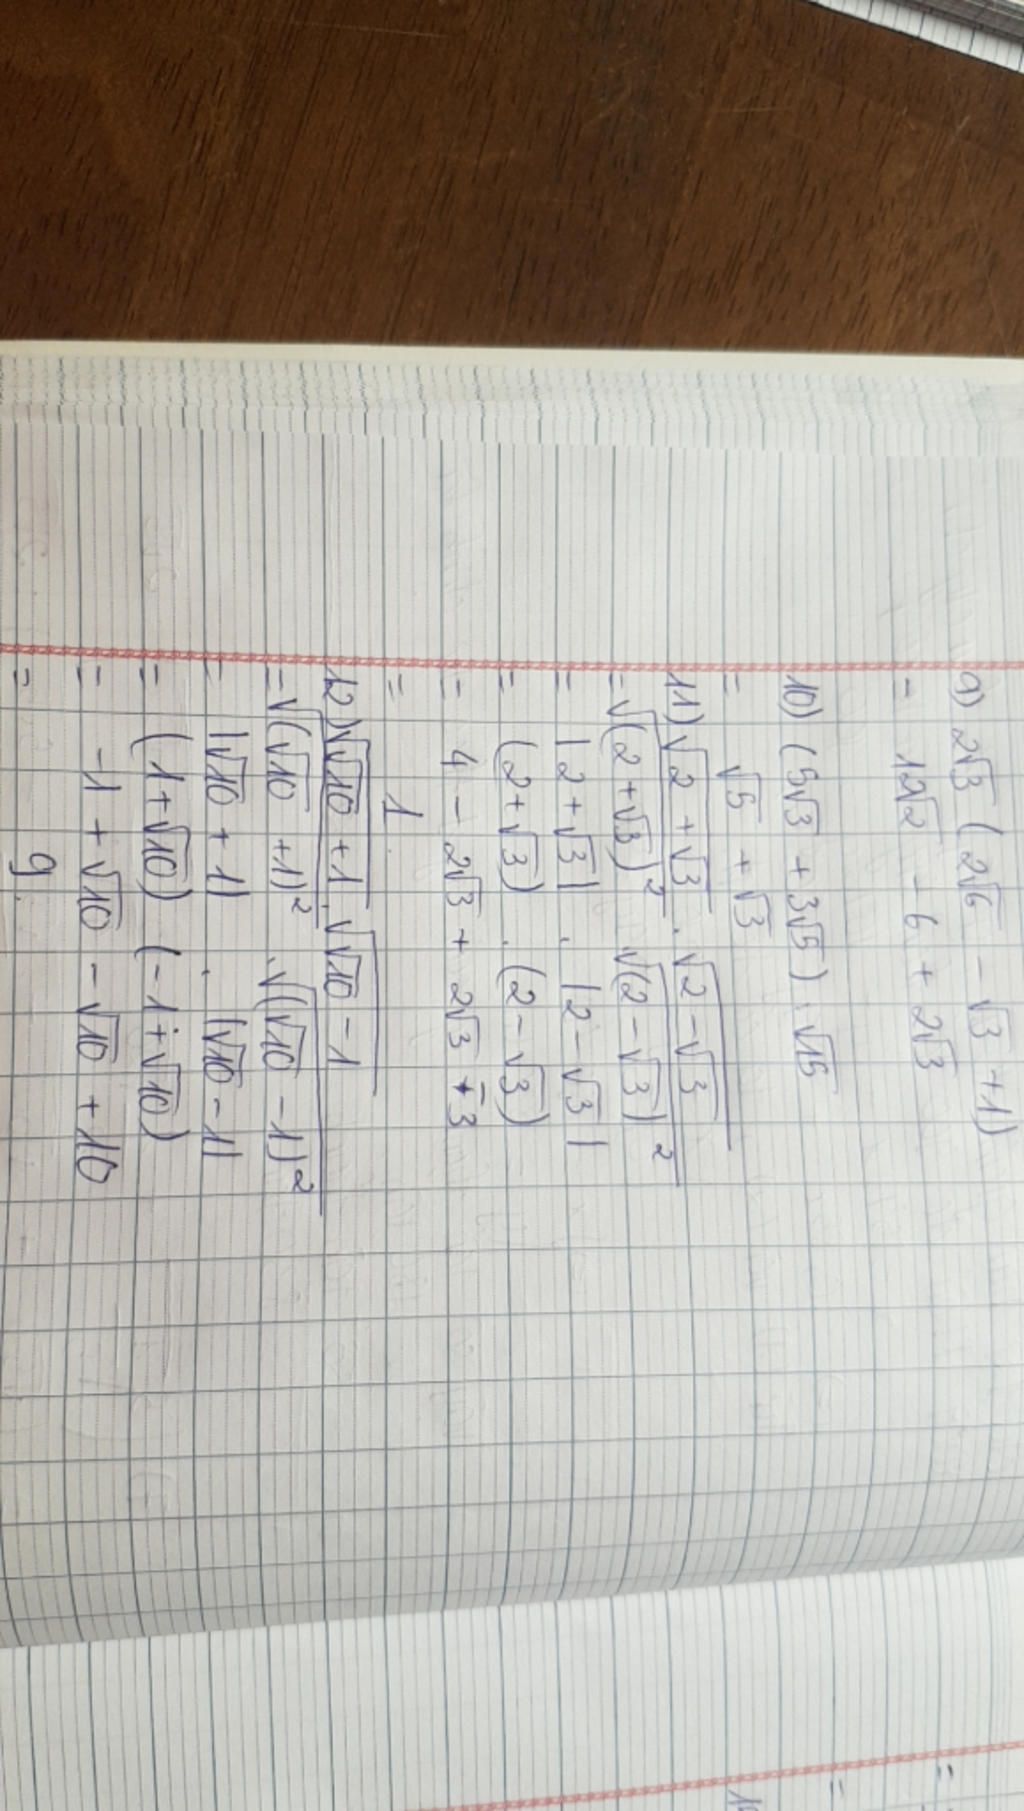 9) 2√3 ( 2√6 - √3 + 1)
= 12√2 - 6 + 2√3
10) (5√3 + 3√5) . √15
= √5 + √3
11) √2+√3 . √2-√3
= √(2+√3)² √(2-√3)²
= |2+√3| . |2-√3|
= (2+√3) . (2-√3)
= 4 - 2√3 + 2√3 - 3
= 1
12) √√10+1 . √√10-1
= √(√10 +1)² . √(√10 -1)²
= |√10 + 1| . |√10 - 1|
= (1+√10) (-1+√10)
= -1 + √10 - √10 + 10
= 9
=
=